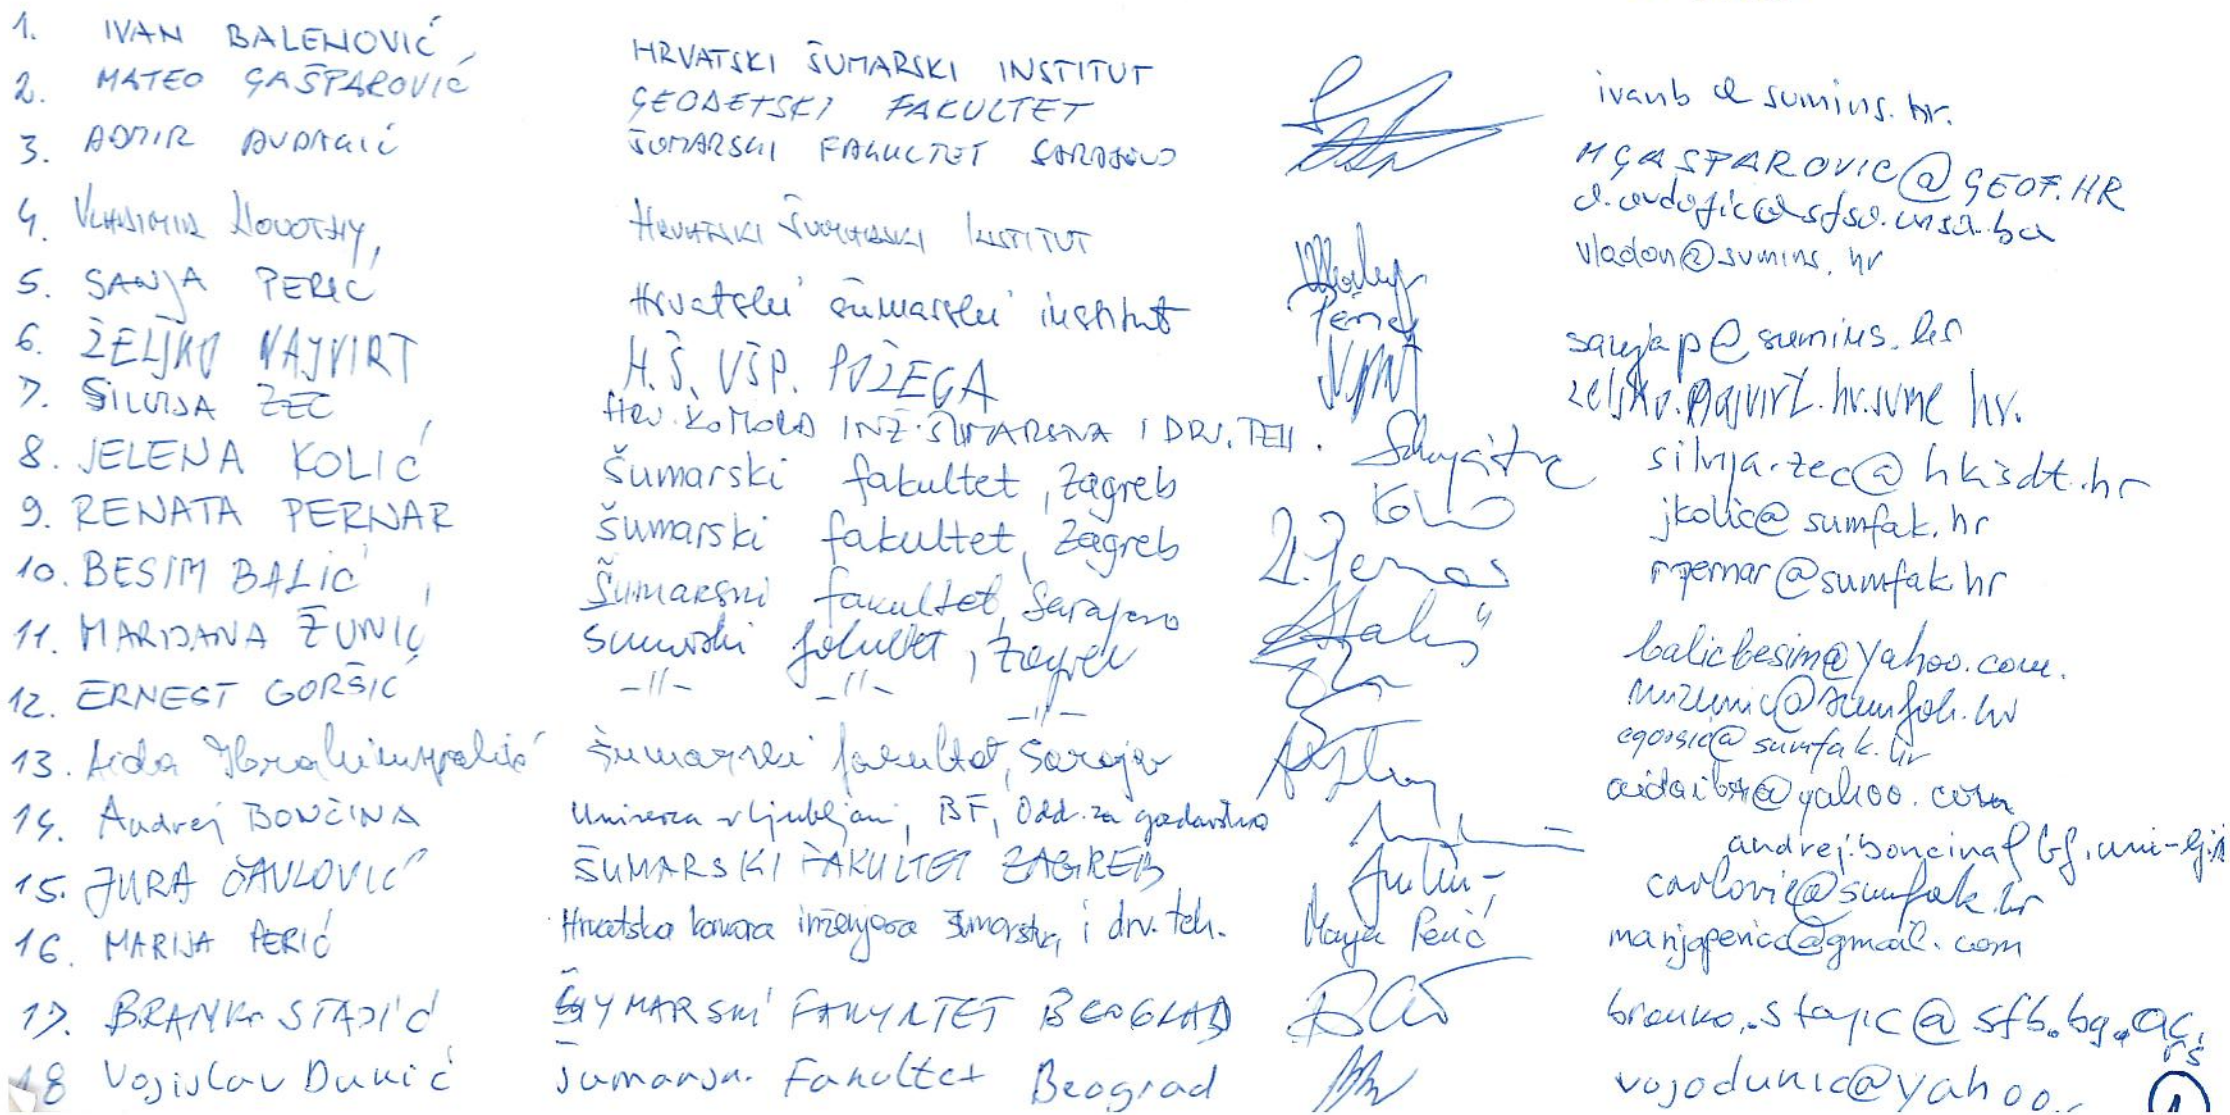 1. IVAN BALENOVIĆ HRVATSKI ŠUMARSKI INSTITUT ivanb@sumins.hr.
2. MATEO GAŠPAROVIĆ GEODETSKI FAKULTET MGASPAROVIC@GEOF.HR
3. ADMIR AVDAGIĆ ŠUMARSKI FAKULTET SARAJEVO a.avdagic@sfsa.unsa.ba
4. VLADIMIR NOVOTNY, HRVATSKI ŠUMARSKI INSTITUT vladon@sumins.hr
5. SANJA PERIĆ Hrvatski šumarski institut sanjap@sumins.hr
6. ŽELJKO NAJVIRT H.Š. VŠP. POŽEGA zeljko.najvirt.hr.sume hr.
7. SILVIJA ZEC HRV. KOMORA INŽ. ŠUMARSTVA I DRV. TEH. silvija.zec@hkisdt.hr
8. JELENA KOLIĆ Šumarski fakultet, Zagreb jkolic@sumfak.hr
9. RENATA PERNAR Šumarski fakultet, Zagreb rpernar@sumfak.hr
10. BESIM BALIĆ Šumarski fakultet, Sarajevo balicbesim@yahoo.com.
11. MARIJANA ŽUNIĆ Šumarski fakultet, Zagreb mzunic@sumfak.hr
12. ERNEST GORŠIĆ -//- -//- -//- egorsic@sumfak.hr
13. Aida Ibrahimspahić Šumarski fakultet, Sarajevo aidaibr@yahoo.com
14. Andrej BONČINA Univerza v Ljubljani, BF, Odd. za gozdarstvo
15. JURA ČAVLOVIĆ ŠUMARSKI FAKULTET ZAGREB cavlovic@sumfak.hr
16. MARIJA PERIĆ Hrvatska komora inženjera šumarstva i drv. teh. Marija Perić marijapericc@gmail.com
17. BRANKO STAJIĆ FAKULTET BEOGRAD branko.stajic@sfb.bg.ac.rs
18 Vojislav Dukić Fakultet Beograd vojodukic@yahoo.
1